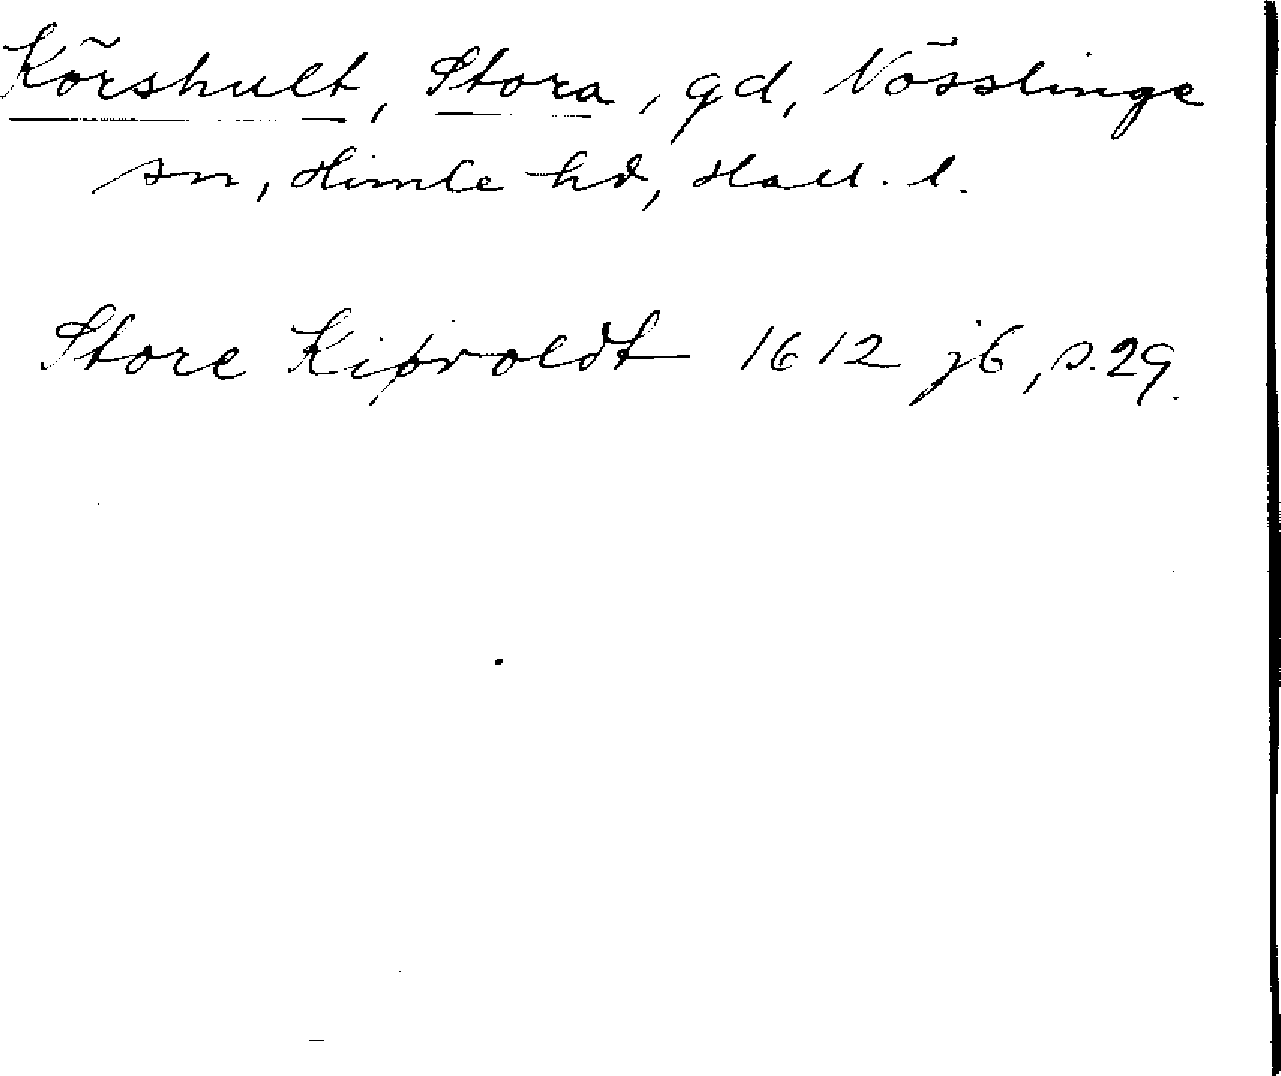 Körshult, Stora, gd, Nösslinge
sn, Himle hd, Hall. l.
Store Kiørvoldt 1612 jb, s. 29.